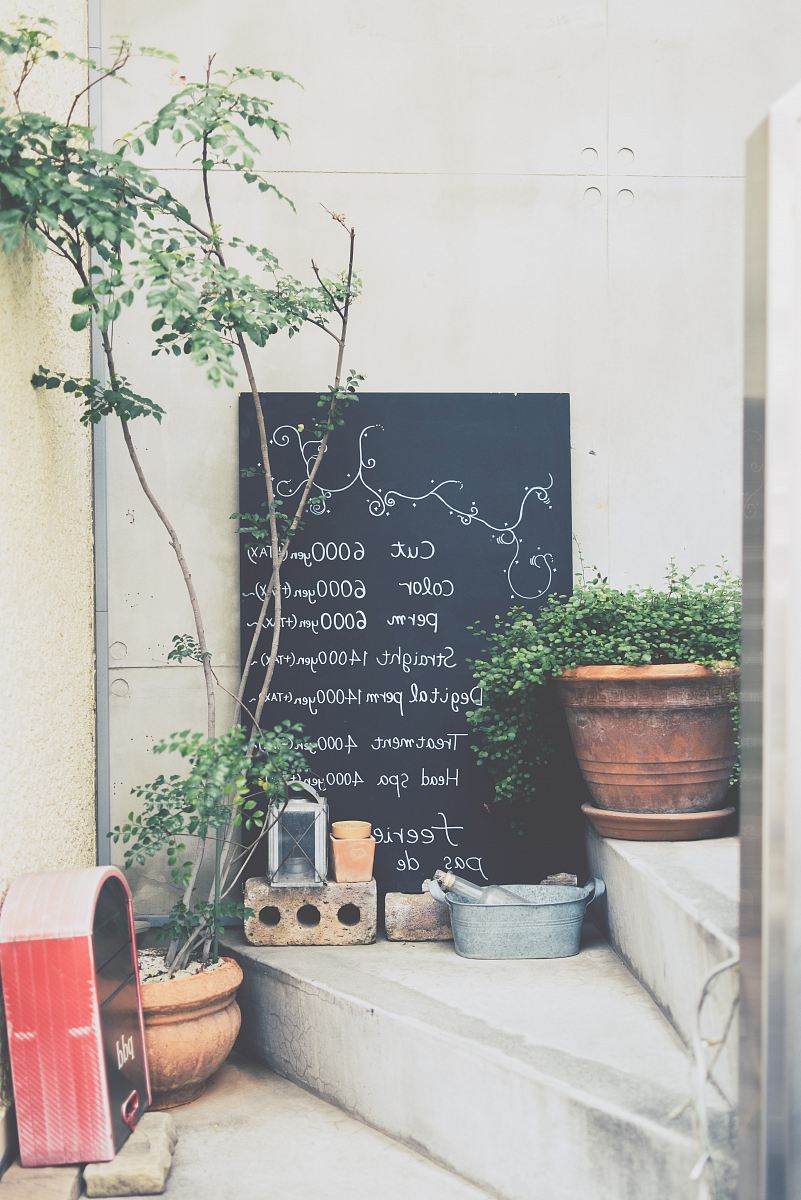 Cut 6000yen(+TAX)
Color 6000yen(+TAX)~
perm 6000yen(+TAX)~
Straight 14000yen(+TAX)~
Degital perm 14000yen(+TAX)~
Treatment 4000yen(+
Head spa 4000yen(+
feerie
pas de